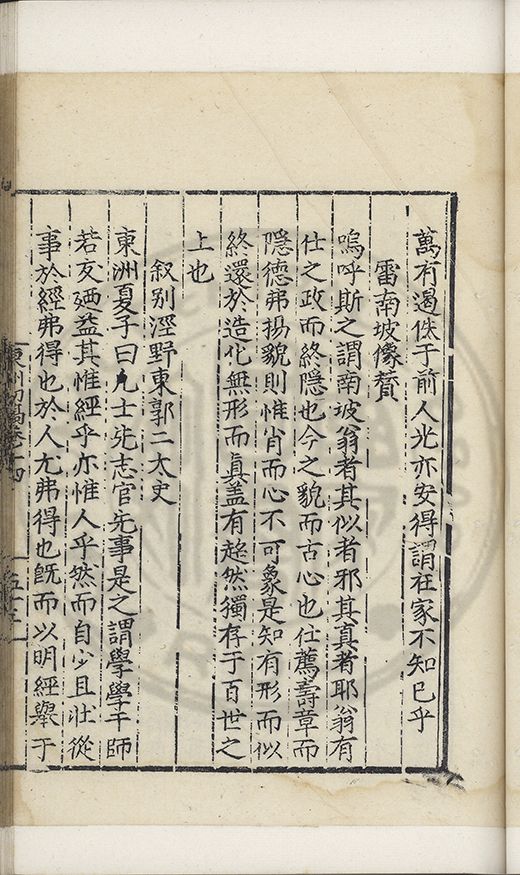 萬有遏佅于前人光亦安得謂在家不知已乎
雷南坡像贊
嗚呼斯之謂南坡翁者其似者邪其真者耶翁有
仕之政而終隱也今之貌而古心也仕薦壽章而
隱德弗揚貌則惟肖而心不可象是知有形而似
終還於造化無形而真盖有趍然獨存于百世之
上也
叙别涇野東郭二太史
東洲夏子曰凡士先志官先事是之謂學學于師
若友廼益其惟經乎亦惟人乎然而自少且壯從
事於經弗得也於人尤弗得也旣而以明經舉于
東洲初稿卷十四